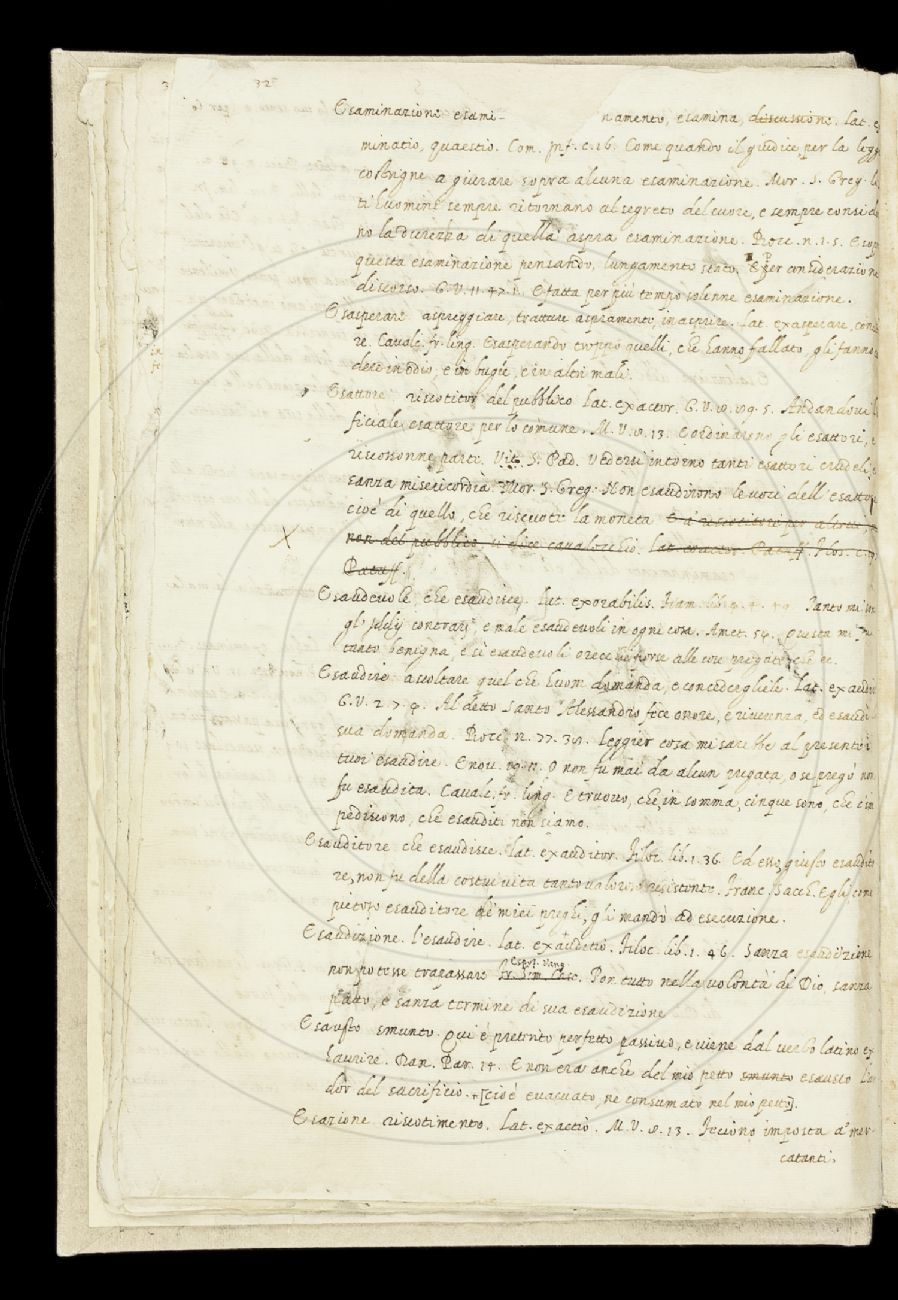 32
Esaminazione esami- namento, esamina, discussione. Lat. ex
minatio, quaestio. Com. Inf. c. 16. Come quando il giudice per la legge
costrigne a giurare sopra alcuna esaminazione. Mor. S. Greg.
ti huomini sempre ritornano al segreto del cuore, e sempre consid
no la durezza di quella aspra esaminazione. Bocc. n. 1. 5. E sop
questa esaminazione pensando, lungamento stato. Per considerazione
discorso. G. V. 11. E fatta per più tempo solenne esaminazione.
Esasperare aspreggiare, trattare aspramente, inasprire. Lat. exasperare,
re. Cavalc. fr. ling. Esasperando troppo quelli, che hanno fallato, gli fanno
dere in odio, e in bugie, e in altri mali.
Esattore, riscotitor del pubblico Lat. exactor. G. V. 5. Andandovi
ficiale esattore per lo comune. M. V. 13. E ordinarono gli esattori,
riscossonne parte. Vit. S. Pad. Vedersi intorno tanti esattori crudeli
sanza misericordia. Mor. S. Greg. Non esaudirono le voci dell' esattore
cioè di quello, che riscuote la moneta E i riscotitori per altrui,
non del pubblico, si dice cavalocchio. Lat. exactor. Pataff.
Pataff.
Esaudevole, che esaudisce. Lat. exorabilis. Fiam. lib. Tanto mi
gl' Iddij contrarj, e male esaudevoli in ogni cosa. Amet. 54. Questa mi
tanto benigna, e sì esaudevoli orecchie porse alle mie pregate, che ec.
Esaudire ascoltare quel che huom domanda, e concedergliele. Lat. exaudire
G. V. 2. 7. Al detto Santo Alessandro fece onore, e riverenza, ed esaudì
sua domanda. Bocc. n. 77. Leggier cosa mi sarebbe al presente i
tuoi esaudire. E nov. O non fu mai da alcun pregata, o se pregò non
fu esaudita. Cavalc. fr. ling. E truovo, che, in somma, cinque sono, che c' im
pediscono, che esauditi non siamo.
Esauditore che esaudisce. Lat. exauditor. Filoc. lib. 1. 36. Ed esso, giusto esaudito
re, non fu della costui vita tanto valoroso resistente. Franc. Sacch. Egli come
pietoso esauditore de' miei prieghi, gli mandò ad esecuzione.
Esaudizione. l'esaudire. Lat. exauditio. Filoc. lib. 1. 46. Sanza esaudizione
non potesse trapassare Espos. Vang. fr. Sim. Casc. Pon tutto nella volontà di Dio, sanza
patto, e sanza termine di sua esaudizione
Esausto smunto. Qui è preterito perfetto passivo, e viene dal verbo latino ex
haurire. Dan. Par. 14. E non era anche del mio petto smunto esausto L'ar
dor del sacrificio. +[cioè evacuato, ne consumato nel mio petto].
Esazione riscotimento. Lat. exactio. M. V. 13. Feciono imposta a' mer-
catanti.